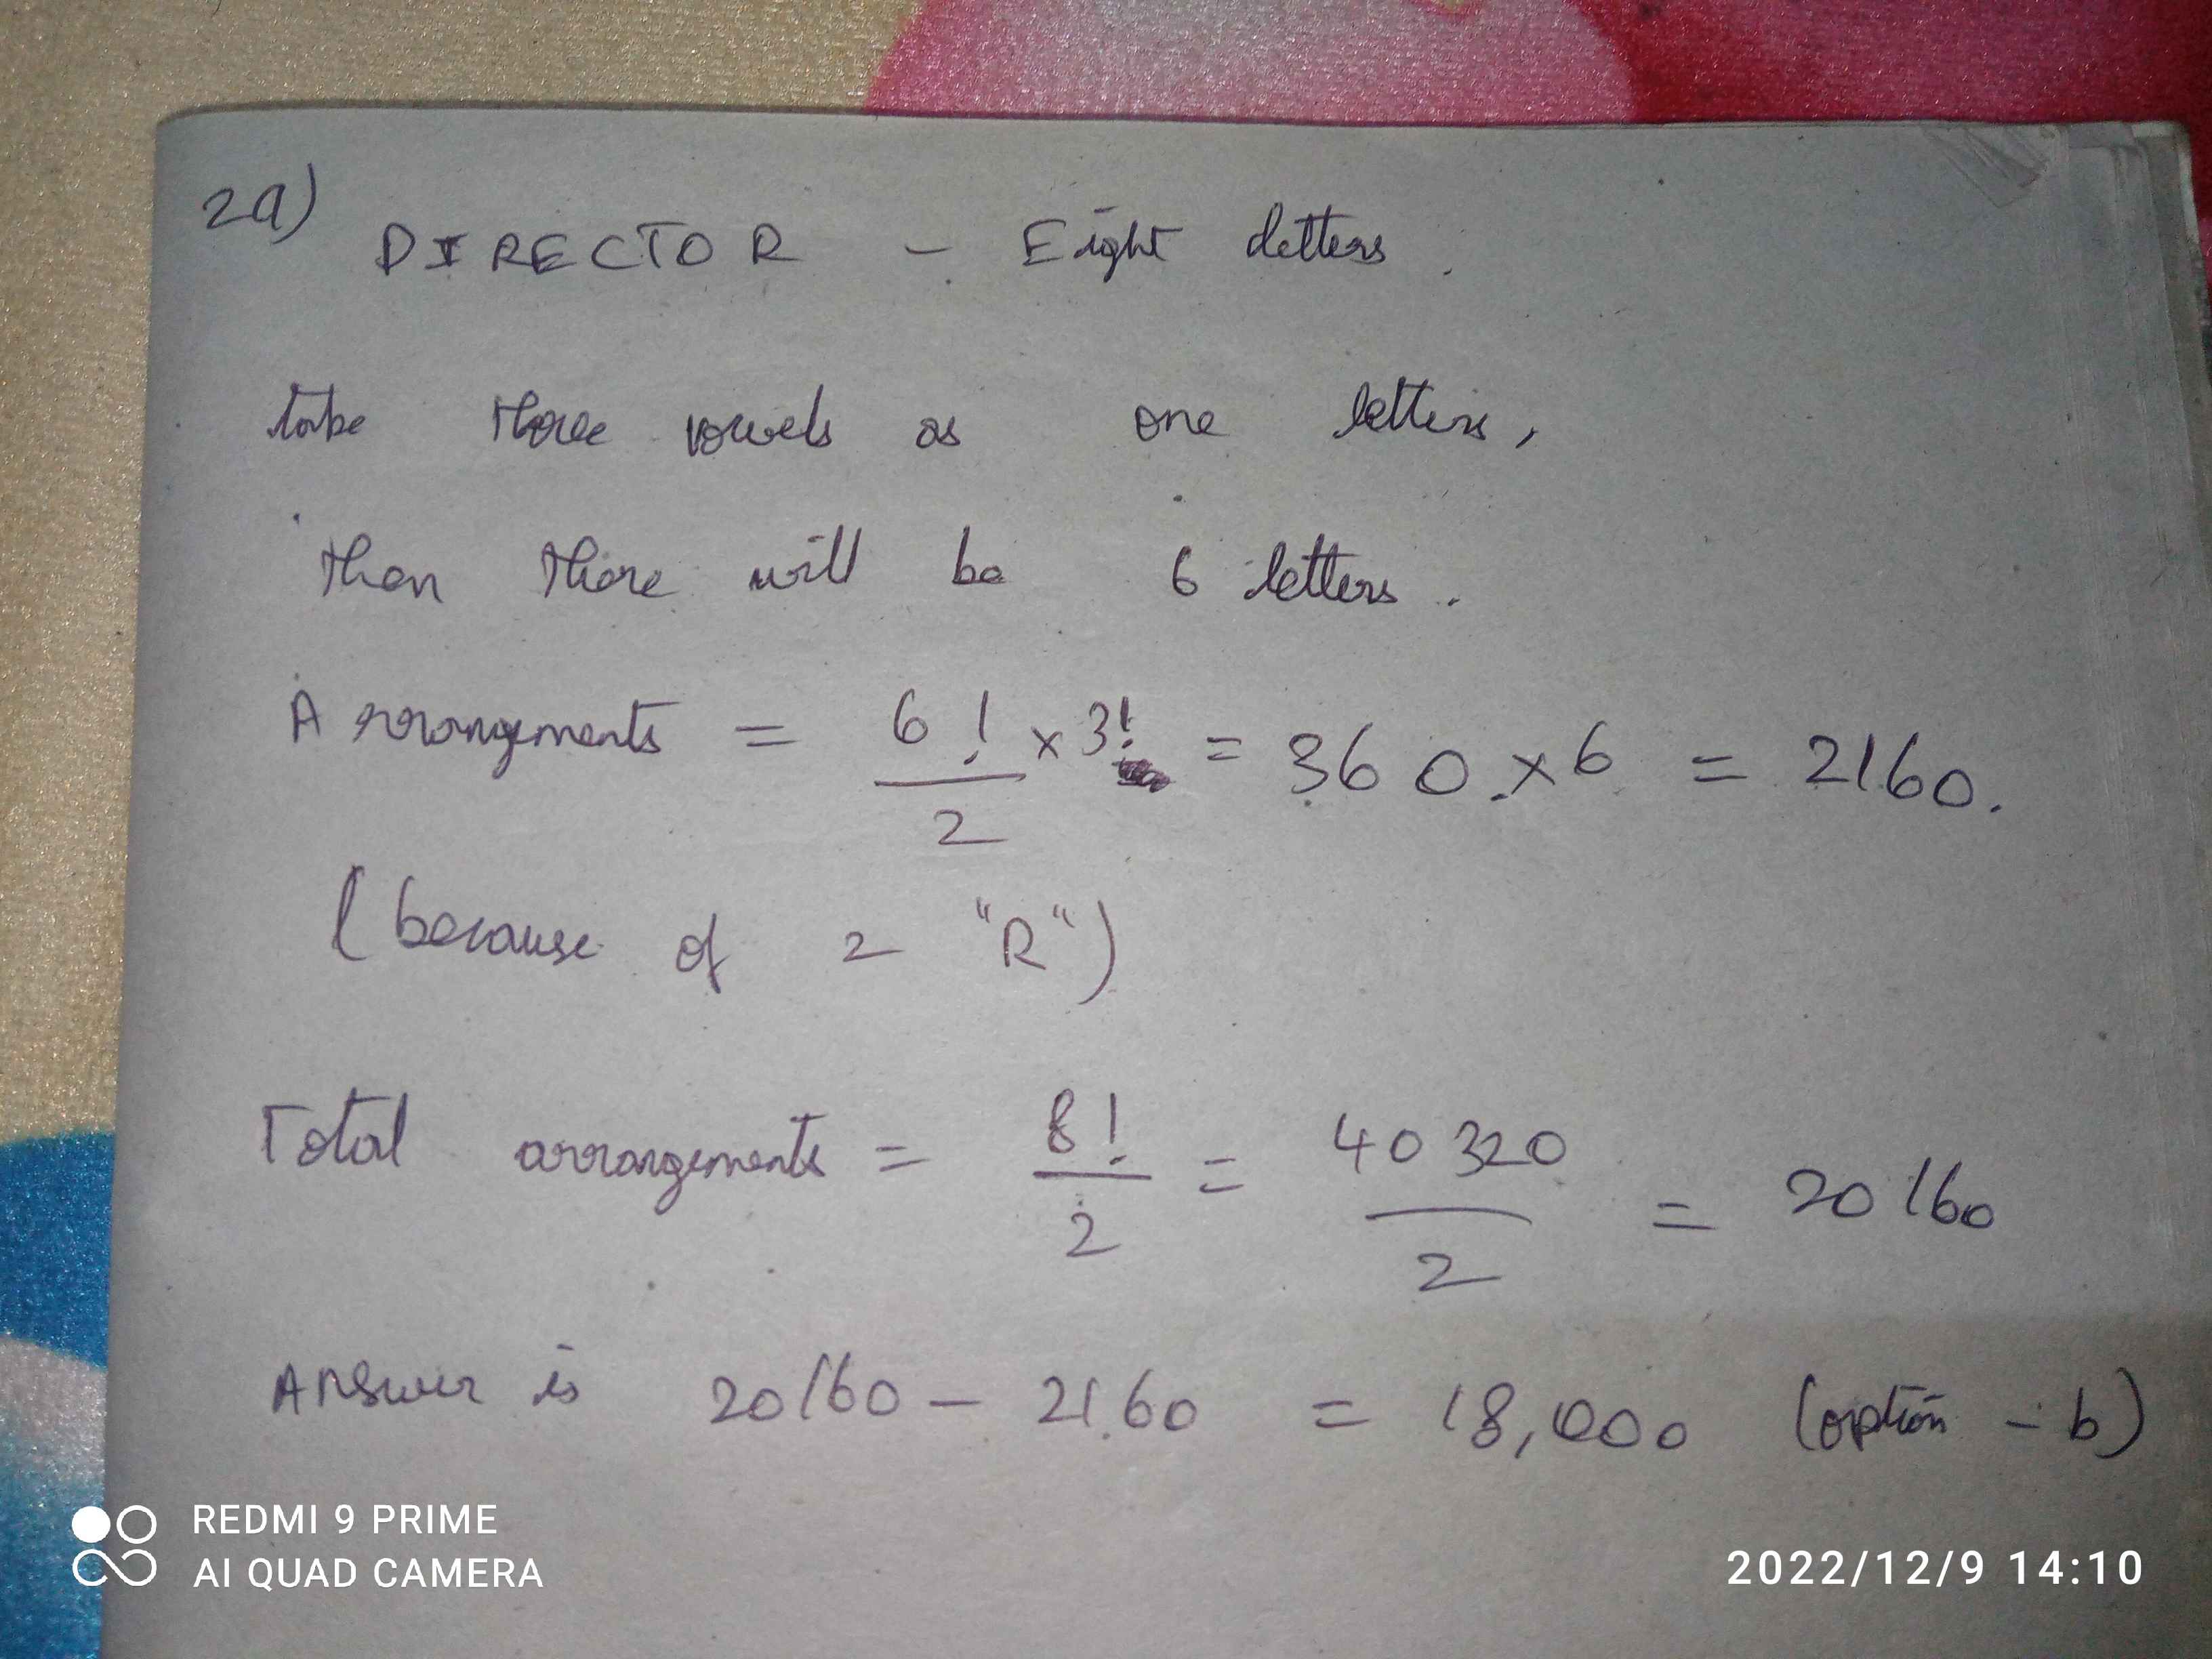 2a)
DIRECTOR - Eight letters.
take three vowels as one letters,
then there will be 6 letters.
Arrangements = 6!/2 × 3! = 360 × 6 = 2160.
(because of 2 "R")
Total arrangements = 8!/2 = 40320/2 = 20160
Answer is 20160 - 2160 = 18,000 (option - b)
REDMI 9 PRIME
AI QUAD CAMERA
2022/12/9 14:10